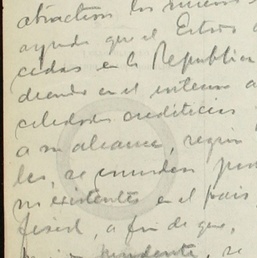 atractivos los nuevos
ayuda que el Estado
cedas en la República
diendo en el interno a
cilidades crediticias
a su alcance, según
les, se inunden por
no existentes en el país
fiscal, a fin de que,
pendente, se